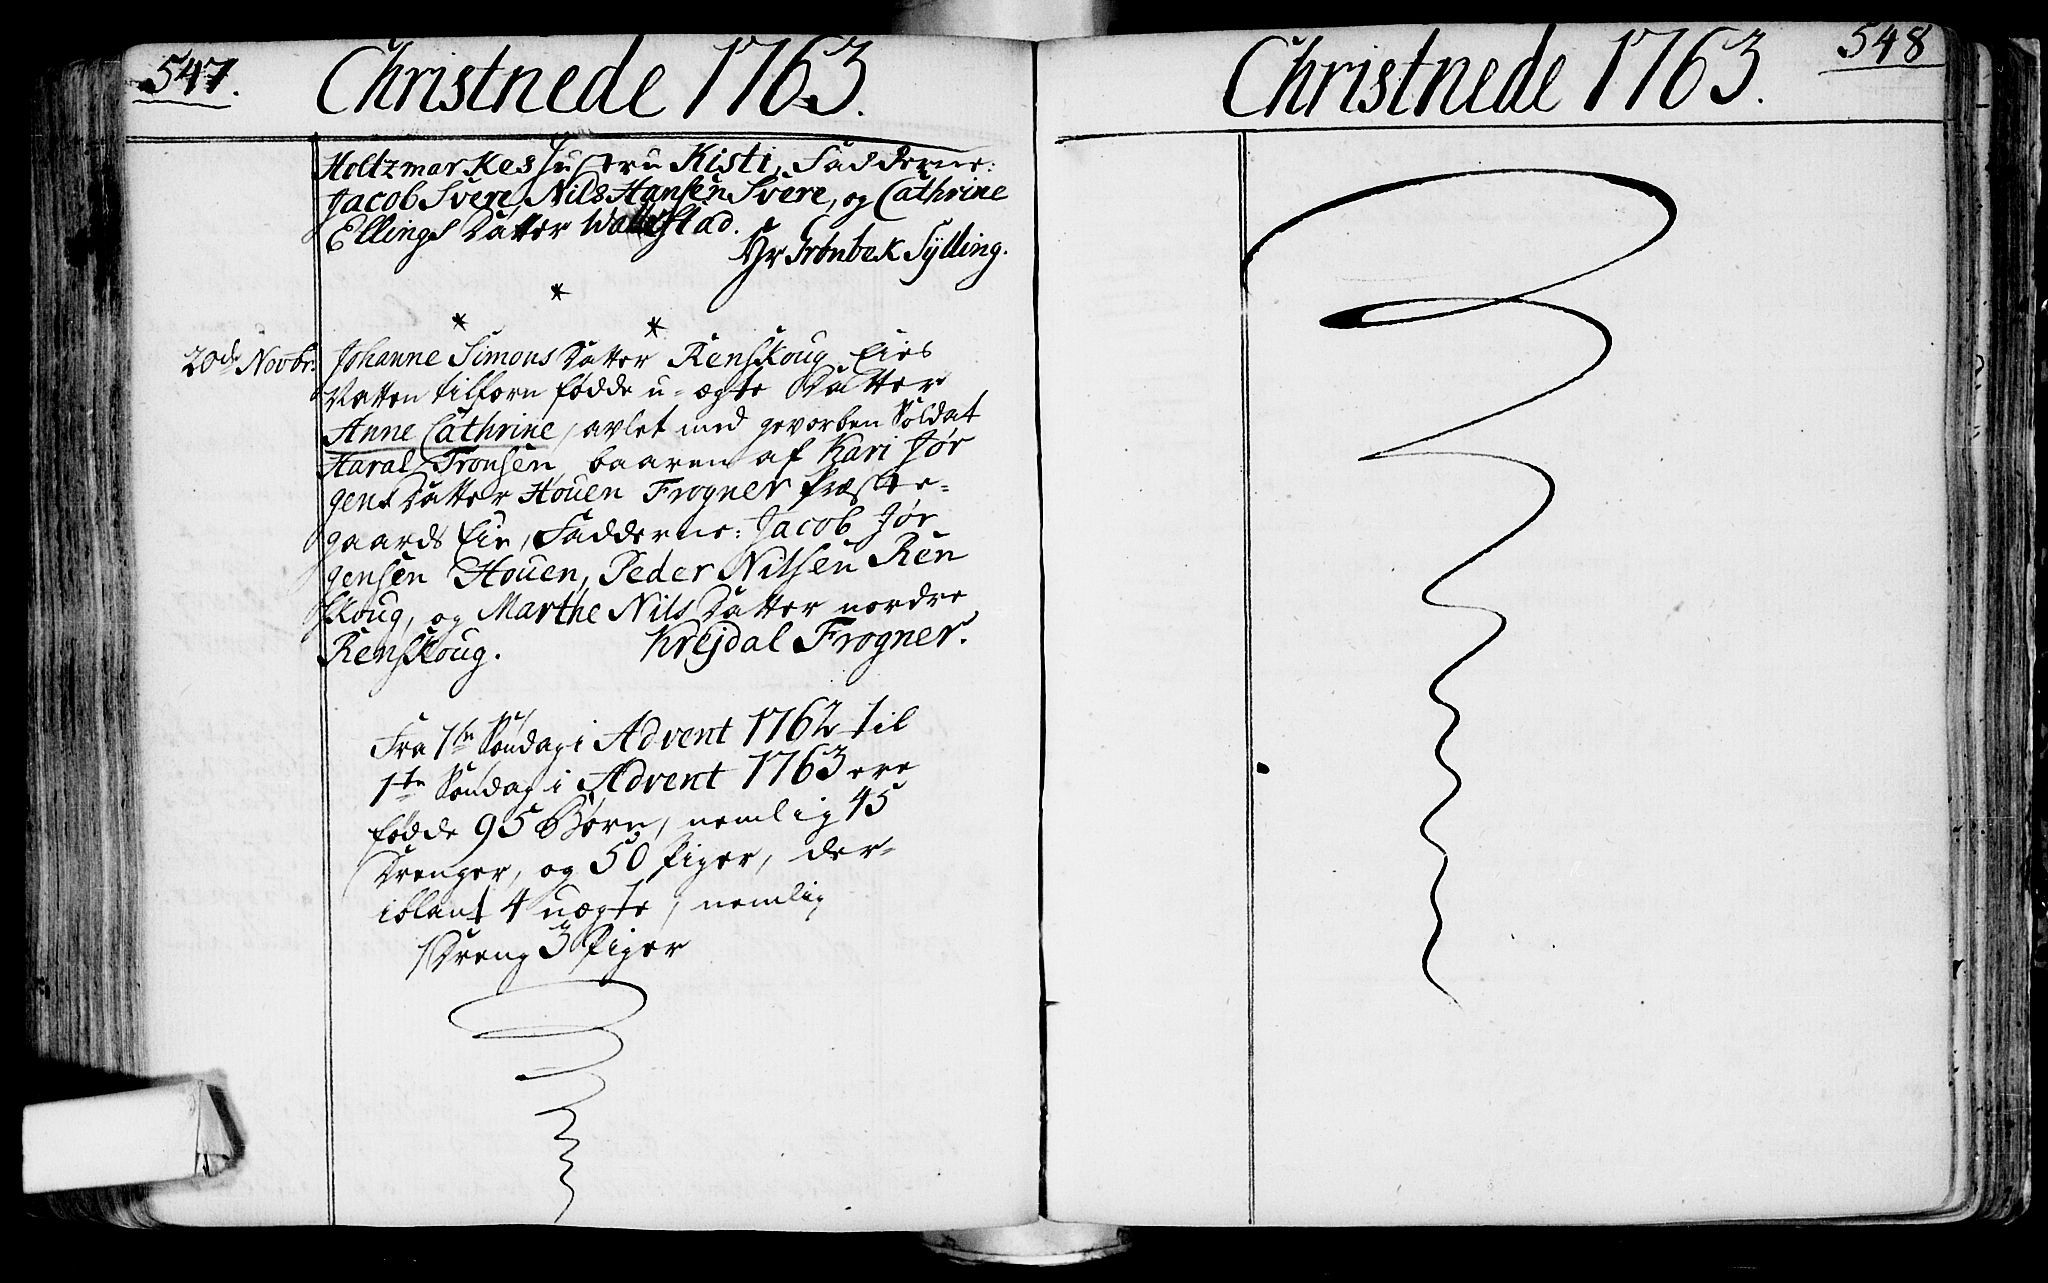 547.
Christnede 1763.
Holtzmarkes Hustru Kisti, Fadderne:
Jacob Svere, Nils Hansen Svere, og Cathrine
Ellings Datter Wallestad.
Grønbek Sylling.
20de Novbr: Johanne Simons Datter Renskoug Eies
Natten tilforn fødde u-ægte Datter
Anne Cathrine, avlet med gevorben Soldat
Haral Tronsen, baaren af Kari Jør
gens Datter Houen Frogner Præste-
gaards Eie, Fadderne: Jacob Jør
gensen Houen, Peder Nilsen Ren
skoug, og Marthe Nils Datter nordre
Renskoug. Krejdal Frogner.
Fra 1ste Søndag i Advent 1762 til
1ste Søndag i Advent 1763 ere
fødde 95 Børn, nemlig 45
Drenger, og 50 Piger, der-
iblant 4 uægte, nemlig
1 Dreng 3 Piger
548
Christnede 1763.